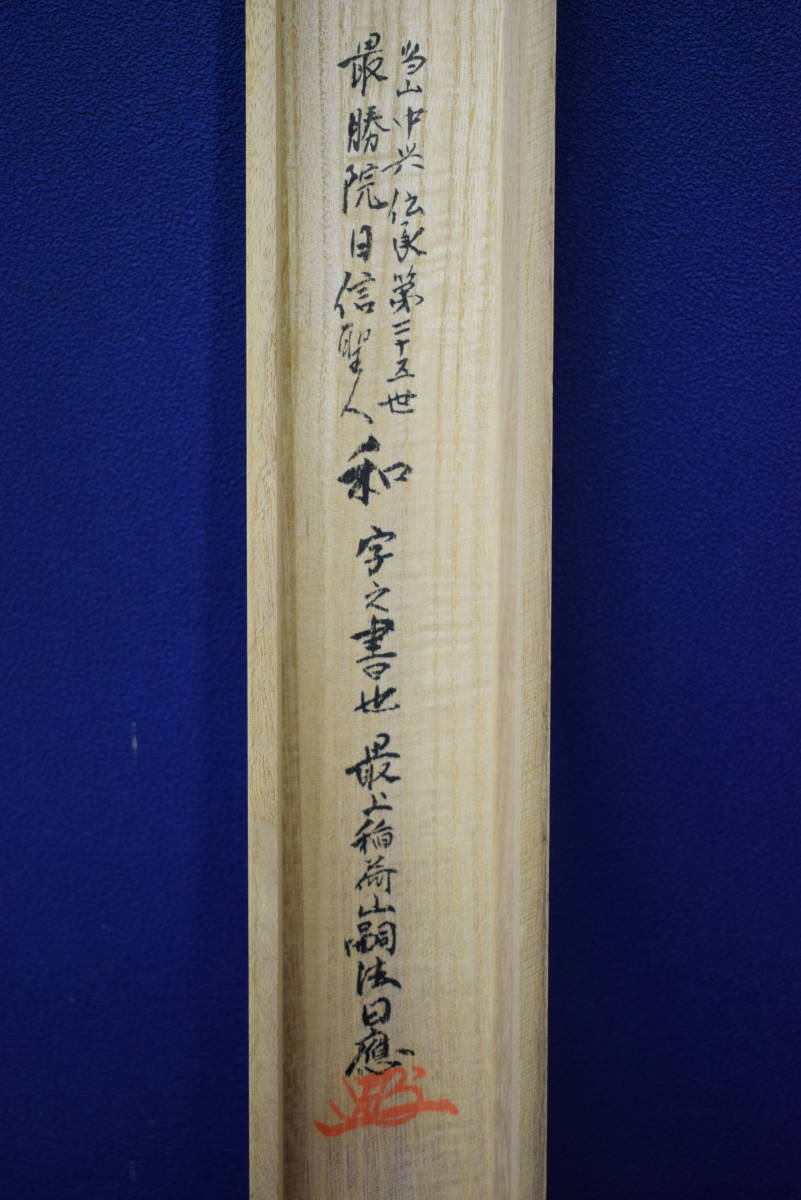 当山中興伝承第二十五世
最勝院日信聖人
和字之書也 最上稲荷山嗣法日應